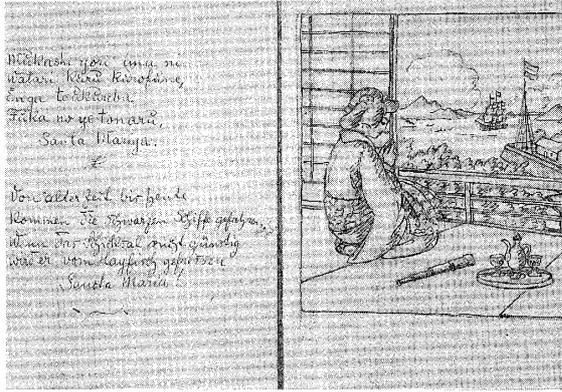 Mukashi yori ima ni
watari kuru kurofune,
Enga
Fuka no ye tonaru,
Santa Mariya.
Von alter Zeit bis heute
Kommen die schwarzen Schiffe gefahren,
Wenn das Schicksal nicht günstig
wird er vom Hayfisch gefressen
Sancta Maria!